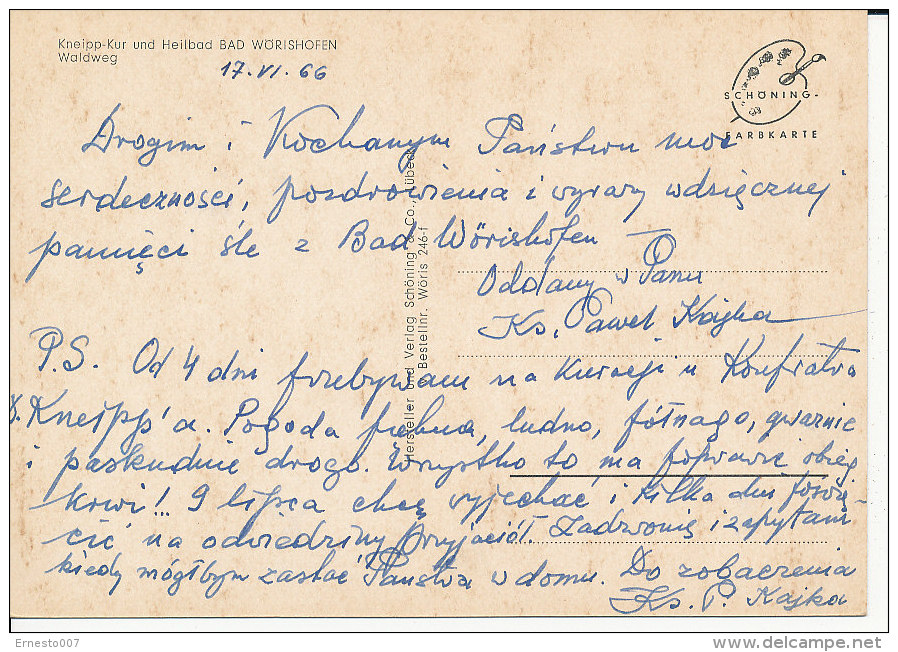 Kneipp-Kur und Heilbad BAD WÖRISHOFEN
Waldweg
17.VI.66
SCHÖNING-
FARBKARTE
Drogim i Kochanym Państwu moc
serdeczności, pozdrowienia i wyrazy wdzięcznej
pamięci śle z Bad Wörishofen –
Oddany w Panu
Ks. Paweł Kajka
Hersteller und Verlag Schöning & Co., Lübeck
Bestellnr. Wöris 246-f
P.S. Od 4 dni przebywam na Kuracji u Konfratra
X. Kneipp'a. Pogoda piękna, ludno, gwarnie
i paskudnie drogo. Wszystko to ma poprawić obieg
krwi!.. 9 lipca chcę wyjechać i kilka dni poświę-
cić na odwiedziny Przyjaciół. Zadzwonię i zapytam
kiedy mógłbym zastać Państwa w domu. Do zobaczenia
Ks. P. Kajka
Ernesto007
delcampe.net